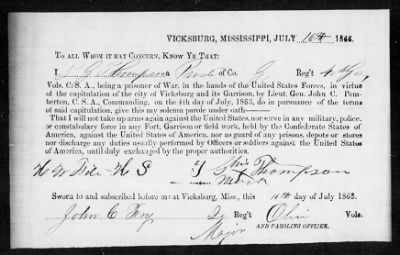 VICKSBURG, MISSISSIPPI, JULY 16th 1863.
TO ALL WHOM IT MAY CONCERN, KNOW YE THAT:
I G Thompson a of Co. G, Reg't
Vols. C. S. A., being a prisoner of War, in the hands of the United States Forces, in virtue
of the capitulation of the city of Vicksburg and its Garrison, by Lieut. Gen. John C. Pem-
berton, C. S. A., Commanding, on the 4th day of July, 1863, do in pursuance of the terms
of said capitulation, give this my solemn parole under oath—
That I will not take up arms again against the United States, nor serve in any military, police,
or constabulary force in any Fort, Garrison or field work, held by the Confederate States of
America, against the United States of America, nor as guard of any prisons, depots or stores
nor discharge any duties usually performed by Officers or soldiers against the United States
of America, until duly exchanged by the proper authorities.
his
G x Thompson
mark
Sworn to and subscribed before me at Vicksburg, Miss., this 16th day of July 1863.
John C Fry 20 Reg't Ohio Vols.
Major AND PAROLING OFFICER.